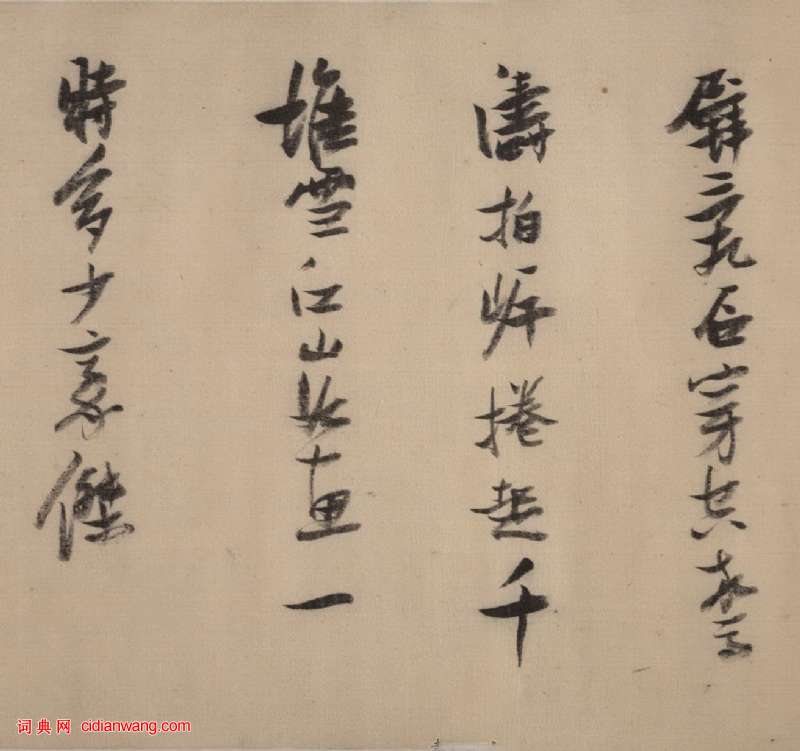 壁亂石穿空驚
濤拍岸捲起千
堆雪江山如畫一
時多少豪傑
词典网 cidianwang.com